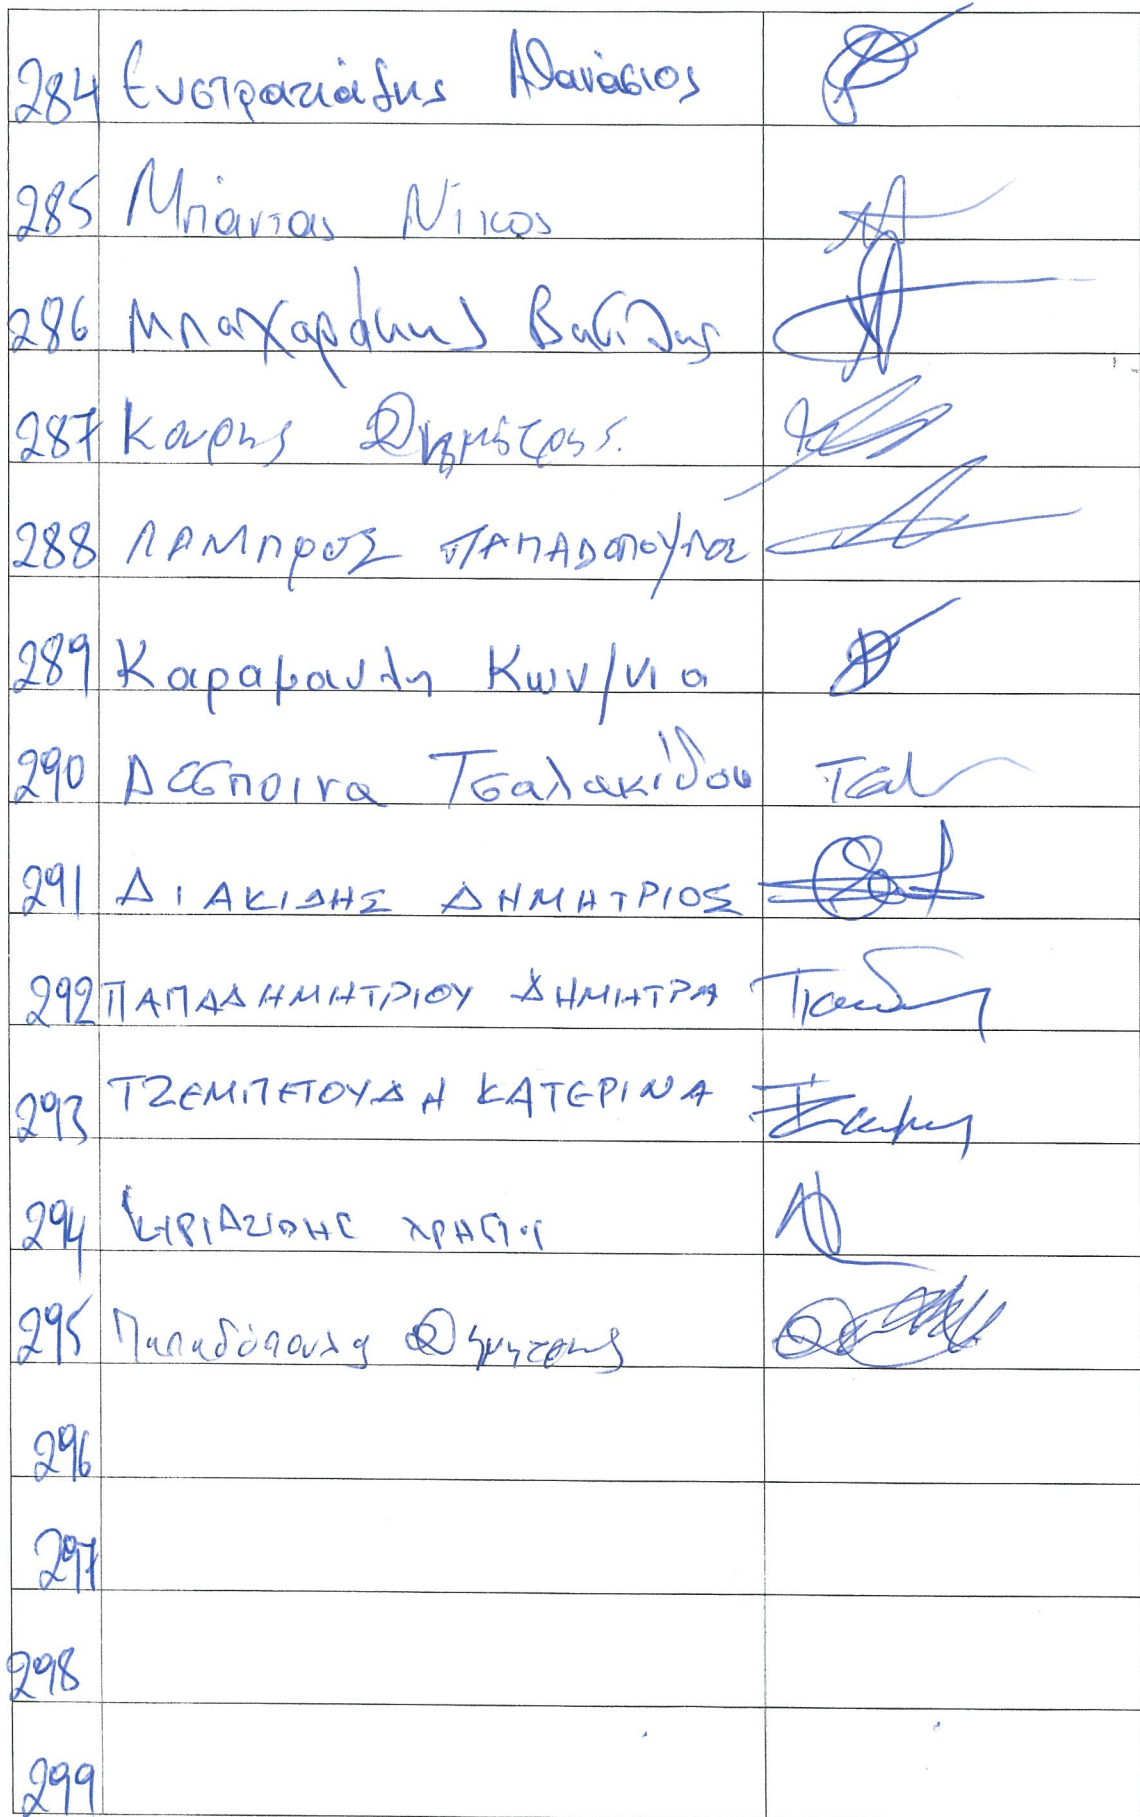 284 Ευστρατιάδης Αθανάσιος
285 Μπάντας Νίκος
286 Μπαχαράκης Βασίλης
287 Κουρης Δημήτρης.
288 ΛΑΜΠΡΟΣ ΠΑΠΑΔΟΠΟΥΛΟΣ
289 Καραμανλη Κων/νια
290 ΔΕσποινα Τσαλακίδου Τσαλ
291 ΔΙΑΚΙΔΗΣ ΔΗΜΗΤΡΙΟΣ
292 ΠΑΠΑΔΗΜΗΤΡΙΟΥ ΔΗΜΗΤΡΑ
293 ΤΖΕΜΠΕΤΟΥΔΗ ΚΑΤΕΡΙΝΑ
294 ΚΥΡΙΑΖΙΔΗΣ ΧΡΗΣΤΟΣ
295 Παπαδόπουλος Δημητρης
296
297
298
299